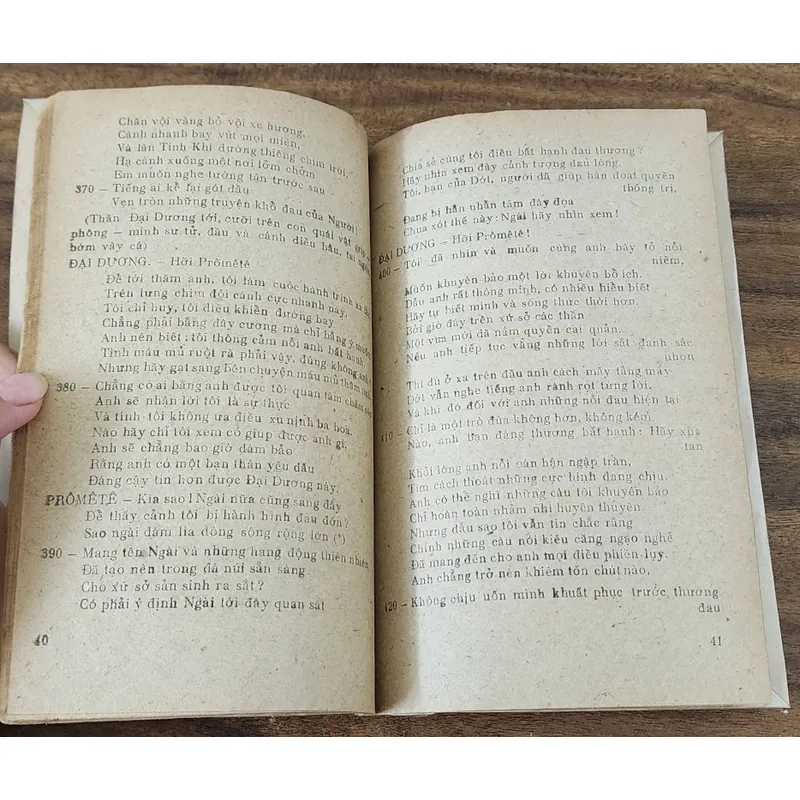 Chân vội vàng bỏ vội xe hương,
Cánh nhanh bay vút mọi miền,
Và làn Tinh Khí đường thiêng chim trời,
Hạ cánh xuống một nơi lởm chởm
Em muốn nghe tường tận trước sau
370 – Tiếng ai kể lại gót đầu
Vẹn tròn những truyện khổ đau của Người
(Thần Đại Dương tới, cưỡi trên con quái vật
phông – minh sư tử, đầu và cánh diều hâu, tai
bờm vây cá)
ĐẠI DƯƠNG. – Hỡi Prômêtê
Để tới thăm anh, tôi làm cuộc hành trình
Trên lưng chim đôi cánh cực nhanh này,
Tôi chỉ huy, tôi điều khiển đường bay
Chẳng phải bằng dây cương mà chỉ bằng ý
Anh nên biết: tôi thông cảm nỗi anh bất hạnh
Tình máu mủ ruột rà phải vậy, đúng không anh
Nhưng hãy gạt sang bên chuyện máu mủ thâm
380 – Chẳng có ai bằng anh được tôi quan tâm chăm
Anh sẽ nhận lời tôi là sự thực
Và tính tôi không ưa điều xu nịnh ba hoa
Nào hãy chỉ tôi xem có giúp được anh gì.
Anh sẽ chẳng bao giờ dám bảo
Rằng anh có một bạn thân yêu dấu
Đáng cậy tin hơn được Đại Dương này.
PRÔMÊTÊ – Kìa sao! Ngài nữa cũng sang đây
Để thấy cảnh tôi bị hành hình đau đớn?
Sao ngài dám lìa dòng sông rộng lớn (*)
390 – Mang tên Ngài và những hang động thiên nhiên
Đã tạo nên trong đá núi sẵn sàng
Cho xứ sở sản sinh ra sắt?
Có phải ý định Ngài tới đây quan sát
40
Chia sẻ cùng tôi điều bất hạnh đau thương?
Hãy nhìn xem đây cảnh tượng đau lòng.
Tôi, bạn của Dớt, người đã giúp hắn đoạt quyền
thống trị,
Đang bị hắn nhẫn tâm đày đọa
Chua xót thế này: Ngài hãy nhìn xem!
ĐẠI DƯƠNG – Hỡi Prômêtê!
400 – Tôi đã nhìn và muốn cùng anh bày tỏ nỗi
niềm,
Muốn khuyên bảo một lời khuyên bổ ích.
Dẫu anh rất thông minh, có nhiều hiểu biết
Hãy tự biết mình và sống thức thời hơn.
Bởi giờ đây trên xứ sở các thần
Một vua mới đã nắm quyền cai quản.
Nếu anh tiếp tục vẳng những lời sắt đanh sắc
nhọn
Thì dù ở xa trên đầu anh cách mây tầng mấy
Dớt vẫn nghe tiếng anh rành rọt từng lời,
Và khi đó đối với anh những nỗi đau hiện tại
410 – Chỉ là một trò đùa không hơn, không kém.
Nào, anh bạn đáng thương bất hạnh: Hãy xua
tan
Khỏi lòng anh nỗi oán hận ngập tràn,
Tìm cách thoát những cực hình đang chịu.
Anh có thể nghĩ những câu tôi khuyên bảo
Chỉ hoàn toàn nhảm nhí huyên thuyên.
Nhưng dẫu sao tôi vẫn tin chắc rằng
Chính những câu nói kiêu căng ngạo nghễ
Đã mang đến cho anh mọi điều phiền lụy.
Anh chẳng trở nên khiêm tốn chút nào,
420 – Không chịu uốn mình khuất phục trước thương
đau
41